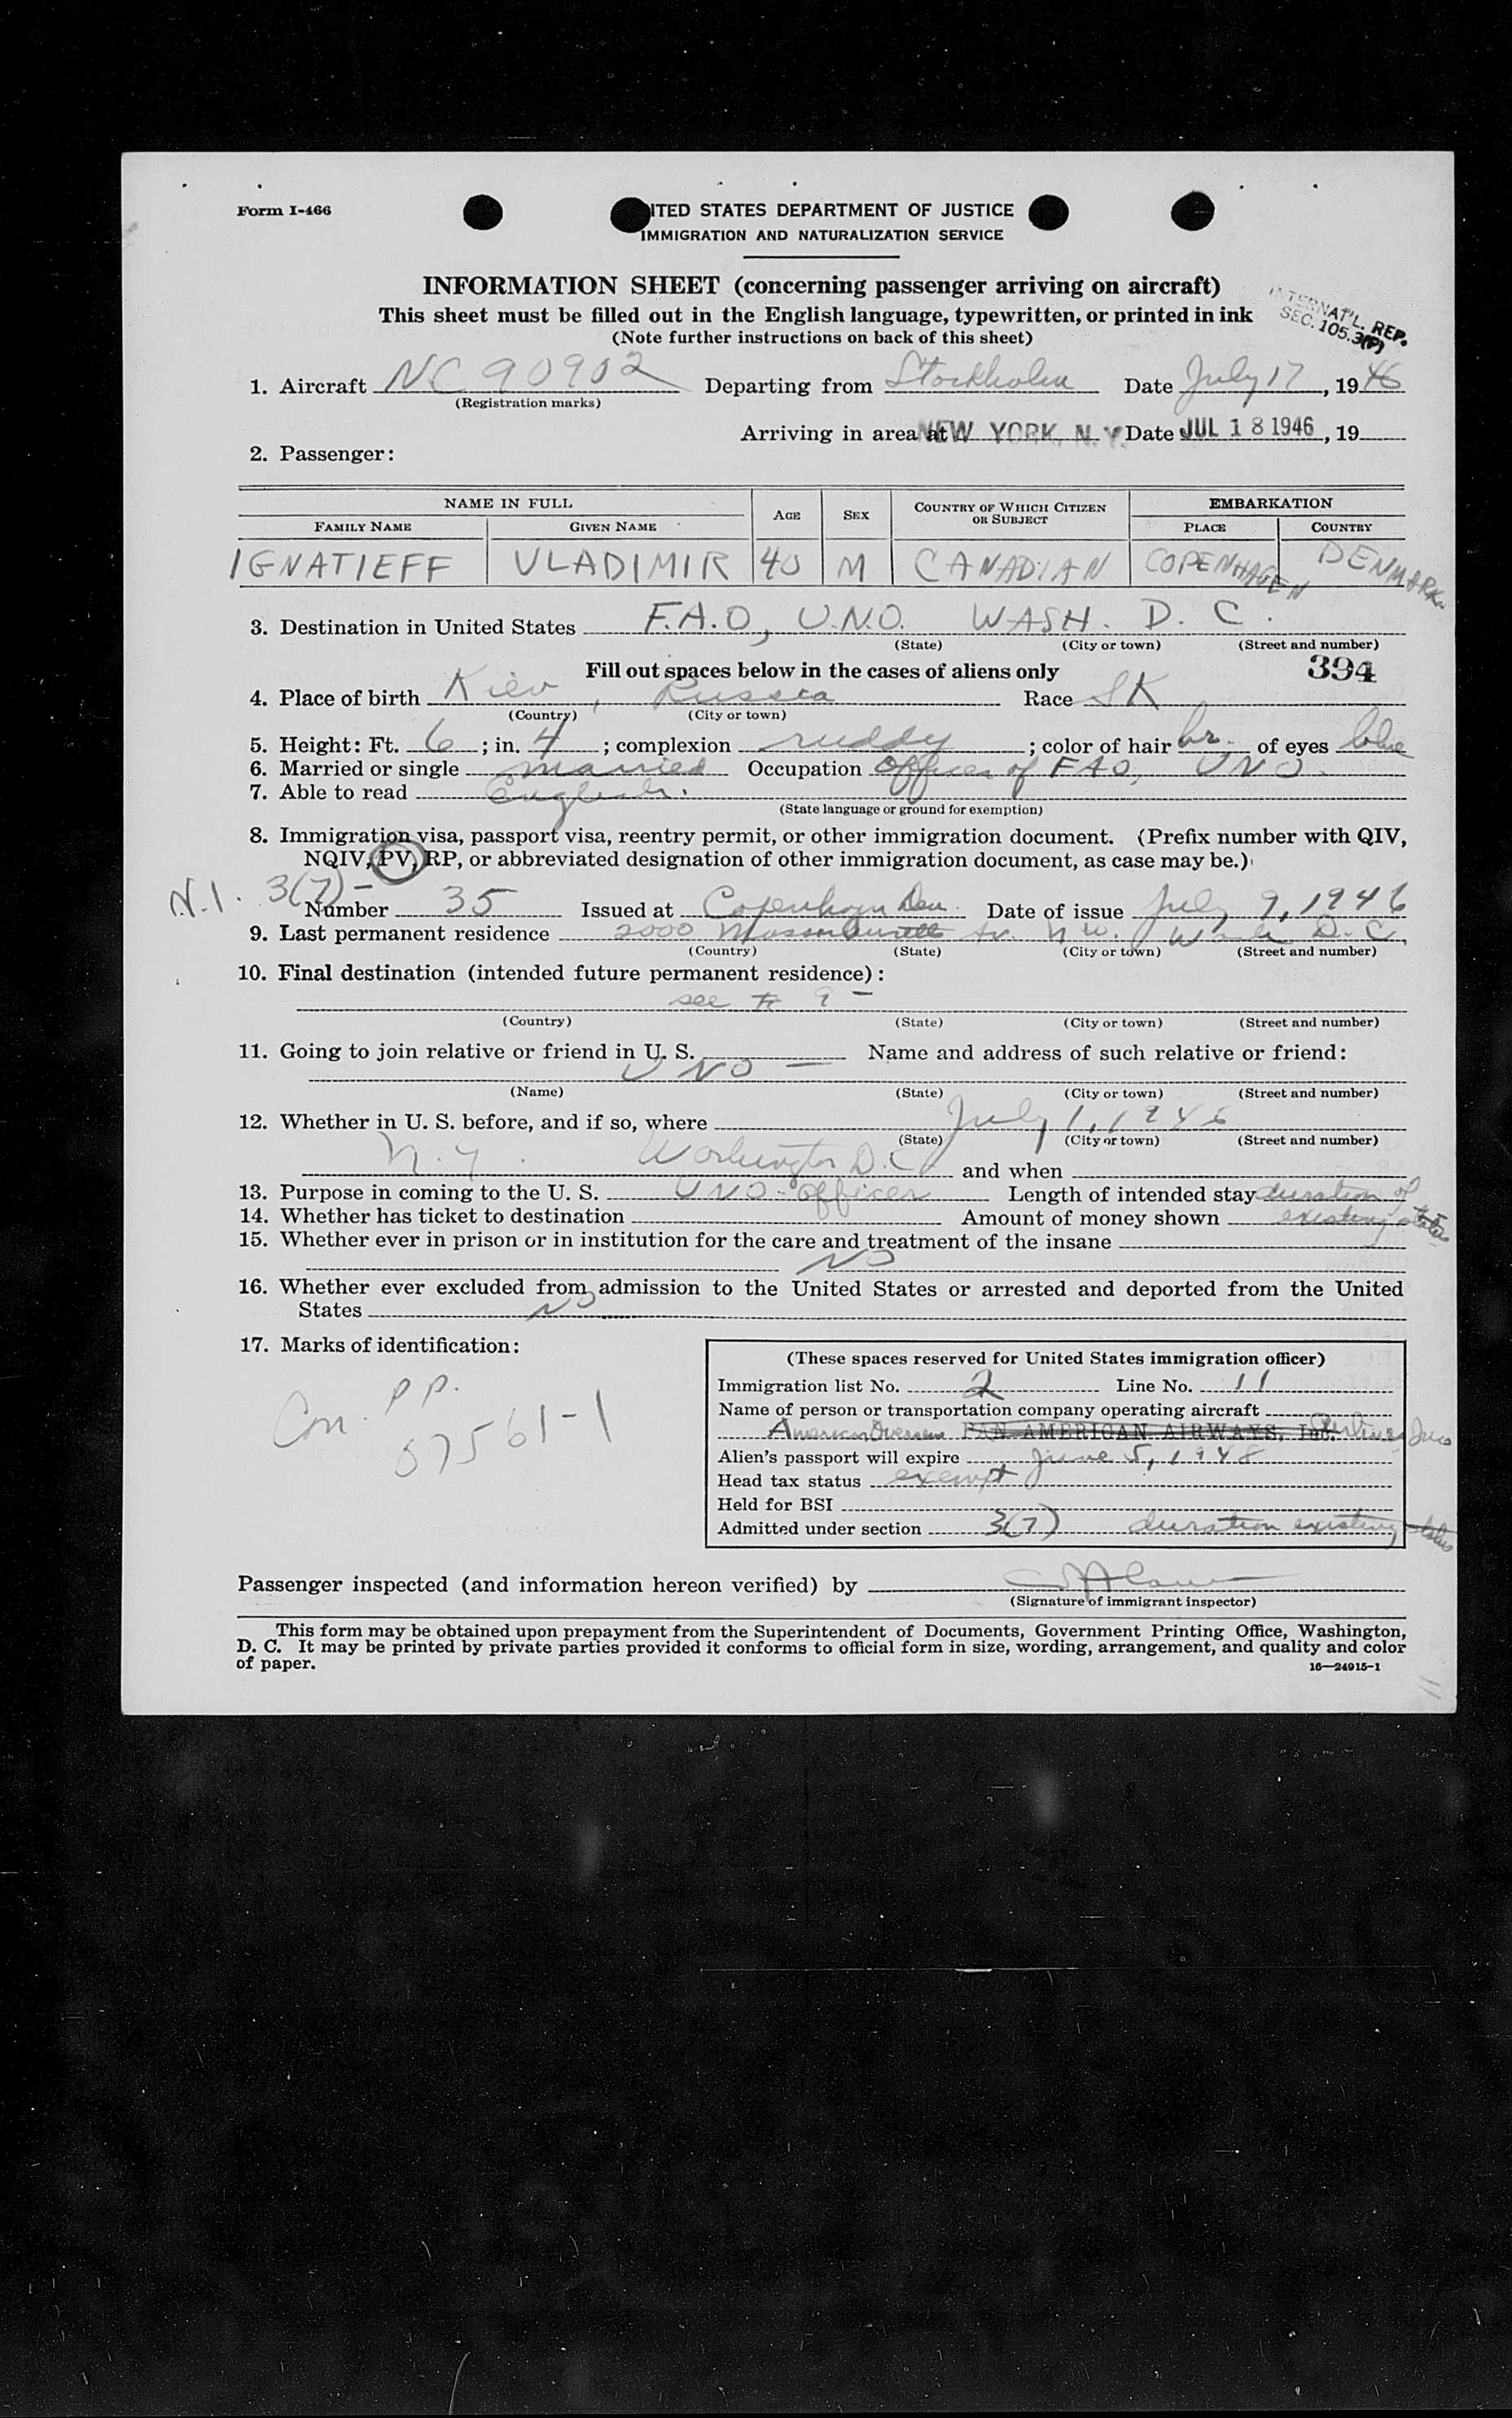 Form I-466
ITED STATES DEPARTMENT OF JUSTICE
IMMIGRATION AND NATURALIZATION SERVICE
INFORMATION SHEET (concerning passenger arriving on aircraft)
This sheet must be filled out in the English language, typewritten, or printed in ink
(Note further instructions on back of this sheet)
INTERNAT'L. REP.
SEC. 105.3(P)
1. Aircraft NC 90902 Departing from Stockholm Date July 17, 1946
(Registration marks)
Arriving in area at NEW YORK, N. Y. Date JUL 18 1946, 19
2. Passenger:
NAME IN FULL AGE SEX COUNTRY OF WHICH CITIZEN OR SUBJECT EMBARKATION
FAMILY NAME GIVEN NAME PLACE COUNTRY
IGNATIEFF VLADIMIR 40 M CANADIAN COPENHAGEN DENMARK
3. Destination in United States F.A.O, U.N.O. WASH. D. C.
(State) (City or town) (Street and number)
Fill out spaces below in the cases of aliens only 394
4. Place of birth Kiev, Russia Race SK
(Country) (City or town)
5. Height: Ft. 6; in. 4; complexion ruddy; color of hair br. of eyes blue
6. Married or single married Occupation Officer of FAO, UNO.
7. Able to read English.
(State language or ground for exemption)
8. Immigration visa, passport visa, reentry permit, or other immigration document. (Prefix number with QIV,
NQIV, PV, RP, or abbreviated designation of other immigration document, as case may be.)
N.I. 3(7)-
Number 35 Issued at Copenhagen Den. Date of issue July 9, 1946
9. Last permanent residence 2000 Massachusetts Av. N W. Wash D.C.
(Country) (State) (City or town) (Street and number)
10. Final destination (intended future permanent residence):
see # 9 -
(Country) (State) (City or town) (Street and number)
11. Going to join relative or friend in U. S. Name and address of such relative or friend:
UNO -
(Name) (State) (City or town) (Street and number)
12. Whether in U. S. before, and if so, where July 1, 1946
(State) (City or town) (Street and number)
N.Y. Washington D.C. and when
13. Purpose in coming to the U. S. UNO - officer Length of intended stay duration of
14. Whether has ticket to destination Amount of money shown existing status
15. Whether ever in prison or in institution for the care and treatment of the insane
NO
16. Whether ever excluded from admission to the United States or arrested and deported from the United
States NO
17. Marks of identification:
Can. P P.
07561-1
(These spaces reserved for United States immigration officer)
Immigration list No. 2 Line No. 11
Name of person or transportation company operating aircraft
American Overseas PAN AMERICAN AIRWAYS, Inc. Airlines Inc
Alien's passport will expire June 5, 1948
Head tax status exempt
Held for BSI
Admitted under section 3(7) duration existing status
Passenger inspected (and information hereon verified) by
(Signature of immigrant inspector)
This form may be obtained upon prepayment from the Superintendent of Documents, Government Printing Office, Washington,
D. C. It may be printed by private parties provided it conforms to official form in size, wording, arrangement, and quality and color
of paper. 16—24915-1